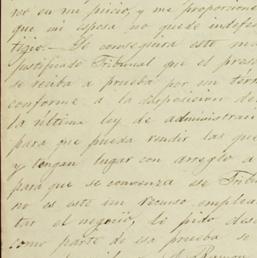 ros en mi juicio, y me proporcione
que mi esposa no quede indefe
Se conseguira este
justificado Tribunal que el pres
se reciba a prueba por un term
conforme a la disposicion de
la ultima ley de administrar
para que pueda rendir las que
y tengan lugar con arreglo a
para que se convenza ese Tribu
no es este un recurso emplea
tar el negocio, le pido des
como parte de esa prueba se
Ramon